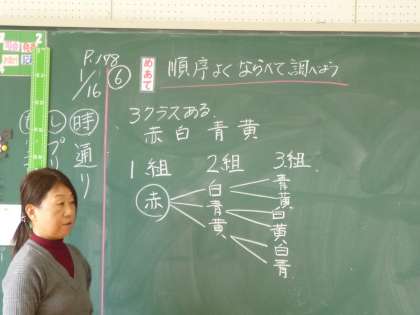 P.178
1/16
⑥
めあて
順序よくならべて調べよう
3クラスある。
赤 白 青 黄
1組 2組 3組
赤
白
青
黄
青
黄
白
黄
白
青
し 時
プ 通
リ り